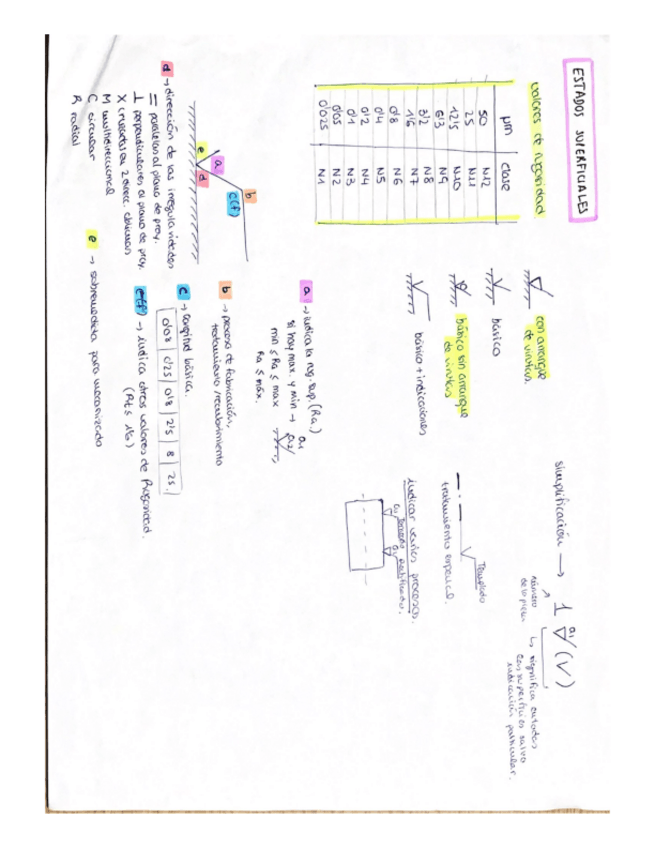 ESTADOS SUPERFICIALES
valores de rugosidad.
µm clase
50 N12
25 N11
12'5 N10
6'3 N9
3'2 N8
1'6 N7
0'8 N6
0'4 N5
0'2 N4
0'1 N3
0'05 N2
0'025 N1
con arranque
de virutas.
básico
básico sin arranque
de virutas
básico + indicaciones
simplificación → 1 a1 (√)
número
de la pieza
↳ significa en todas
las superficies salvo
indicación particular.
Templado
tratamiento especial.
indicar varios procesos.
a
b
c(f)
d
e
a → indica la rug. sup. (Ra.)
si hay max. y min → a1
a2
min ≤ Ra ≤ max
Ra ≤ máx.
b → proceso de fabricación,
tratamiento/recubrimiento
c → longitud básica.
0'08 | 0'25 | 0'8 | 2'5 | 8 | 25.
c(f) → indica otros valores de Rugosidad.
d → dirección de las irregularidades
= paralelas al plano de proy.
⊥ perpendiculares al plano de proy.
X cruzada en 2 direcc. oblicuas
M multidireccional
C circular
R radial
e → sobremedida para mecanizado